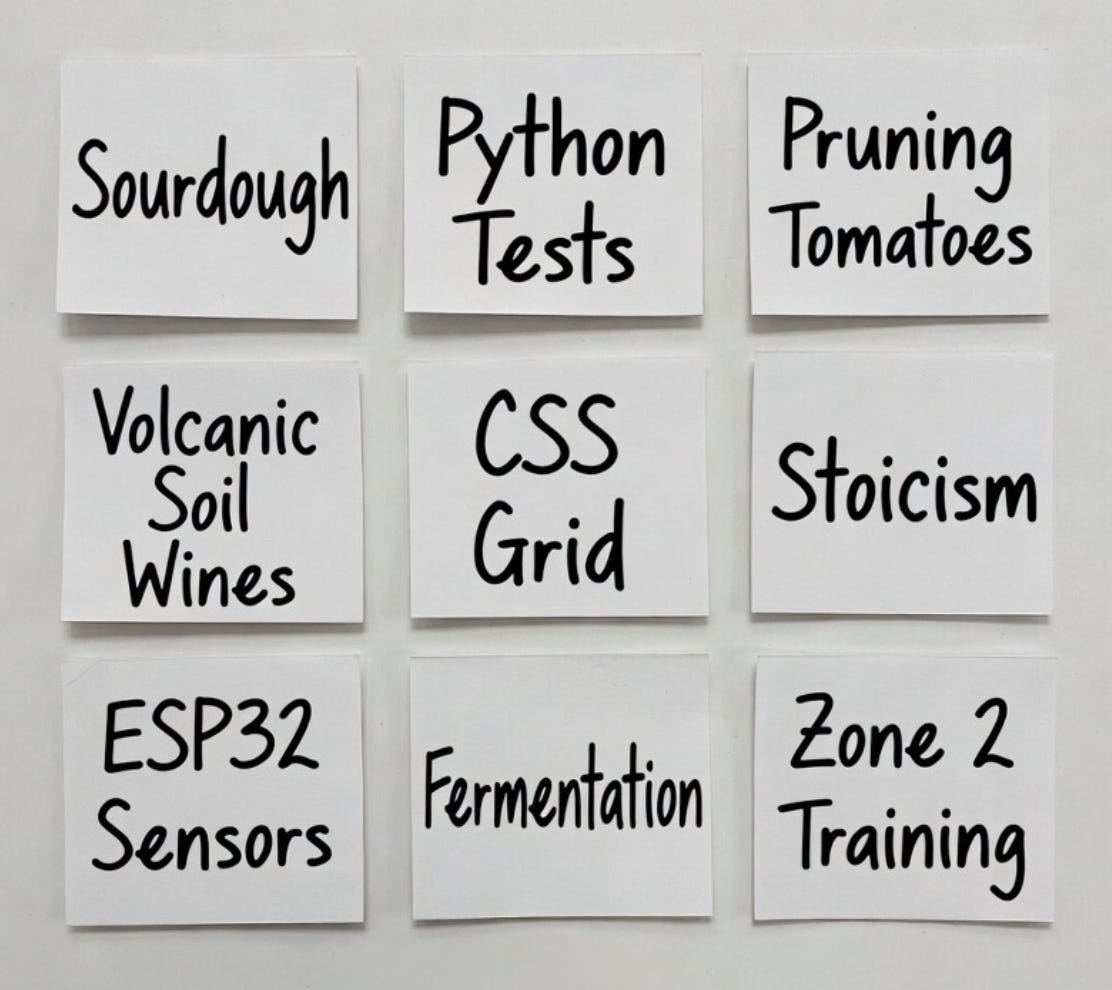 Sourdough
Python
Tests
Pruning
Tomatoes
Volcanic
Soil
Wines
CSS
Grid
Stoicism
ESP32
Sensors
Fermentation
Zone 2
Training